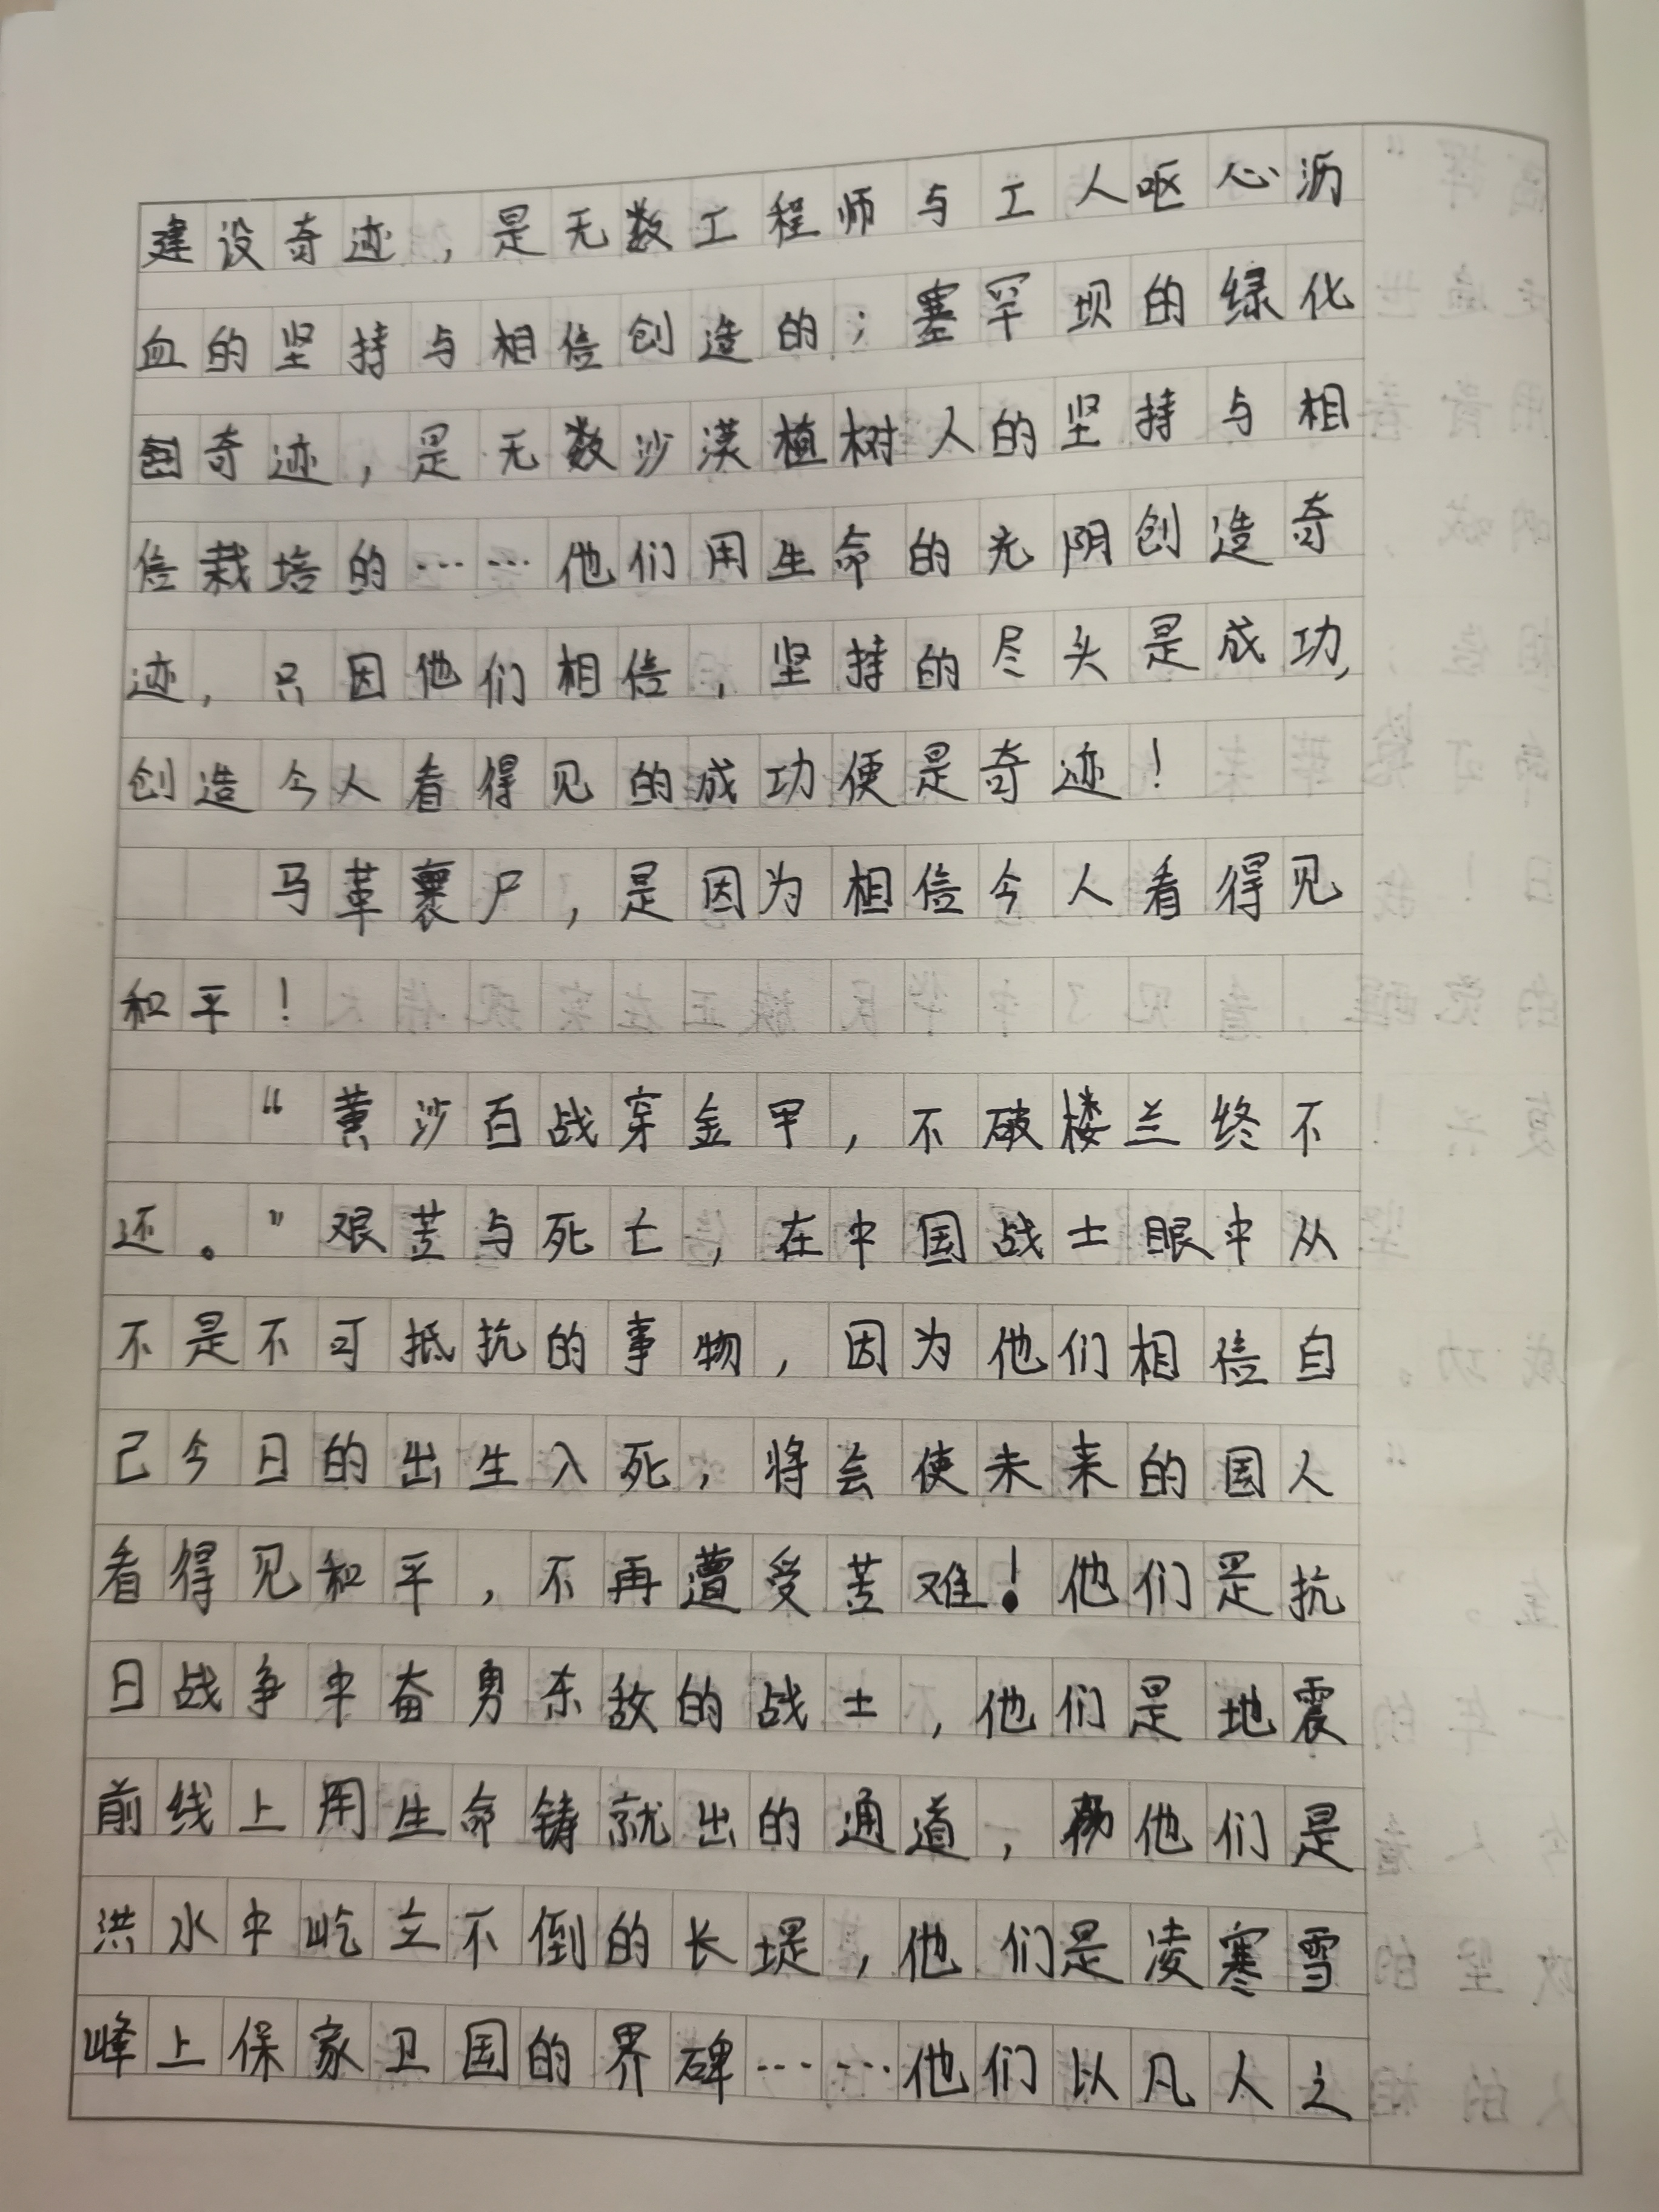 建设奇迹，是无数工程师与工人呕心沥
血的坚持与相信创造的；塞罕坝的绿化
奇迹，是无数沙漠植树人的坚持与相
信栽培的……他们用生命的光阴创造奇
迹，只因他们相信，坚持的尽头是成功，
创造今人看得见的成功便是奇迹！
马革裹尸，是因为相信今人看得见
和平！
“黄沙百战穿金甲，不破楼兰终不
还。”艰苦与死亡，在中国战士眼中从
不是不可抵抗的事物，因为他们相信自
己今日的出生入死，将会使未来的国人
看得见和平，不再遭受苦难！他们是抗
日战争中奋勇杀敌的战士，他们是地震
前线上用生命铸就出的通道，他们是
洪水中屹立不倒的长堤，他们是凌寒雪
峰上保家卫国的界碑……他们以凡人之